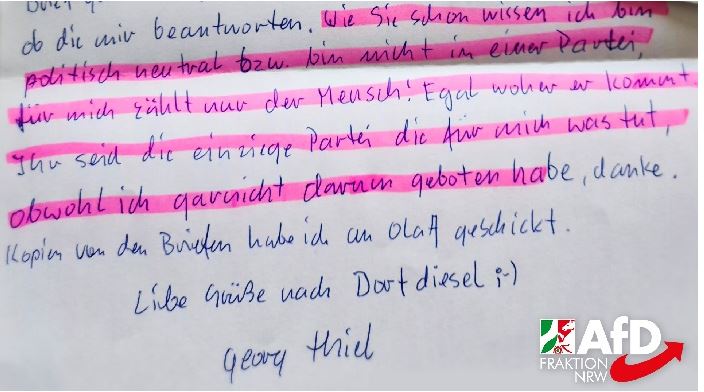 ob die mir beantworten. Wie Sie schon wissen ich bin
politisch neutral bzw. bin nicht in einer Partei,
für mich zählt nur der Mensch! Egal woher er kommt
Ihr seid die einzige Partei die für mich was tut,
obwohl ich garnicht darum geboten habe, danke.
Kopien von den Briefen habe ich an Olaf geschickt.
Liebe Grüße nach Dortdiesel ;-)
Georg Thiel
AfD
FRAKTION
NRW